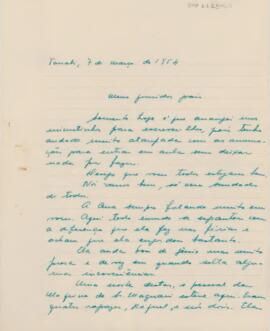 7 de março de 1954
Meus queridos pais
Somente hoje é que arranjei uns
minutinhos para escrever lhes, pois tenho
andado muito atarefada com as arruma-
ções para entrar em aula sem deixar
nada por fazer.
Desejo que vocês todos estejam bem.
Nós vamos bem, só com saudades
de todos.
A Ana sempre falando muito em
vocês. Aqui todo mundo se espantou com
a diferença que ela fez nas férias e
acham que ela engordou bastante.
Ela anda bem de gênio mas muito
prosa e de vez em quando solta algu-
mas inconveniências.
Uma noite destas, o pessoal da
esteve aqui. Eram
quatro rapazes, e mais dois. Eles